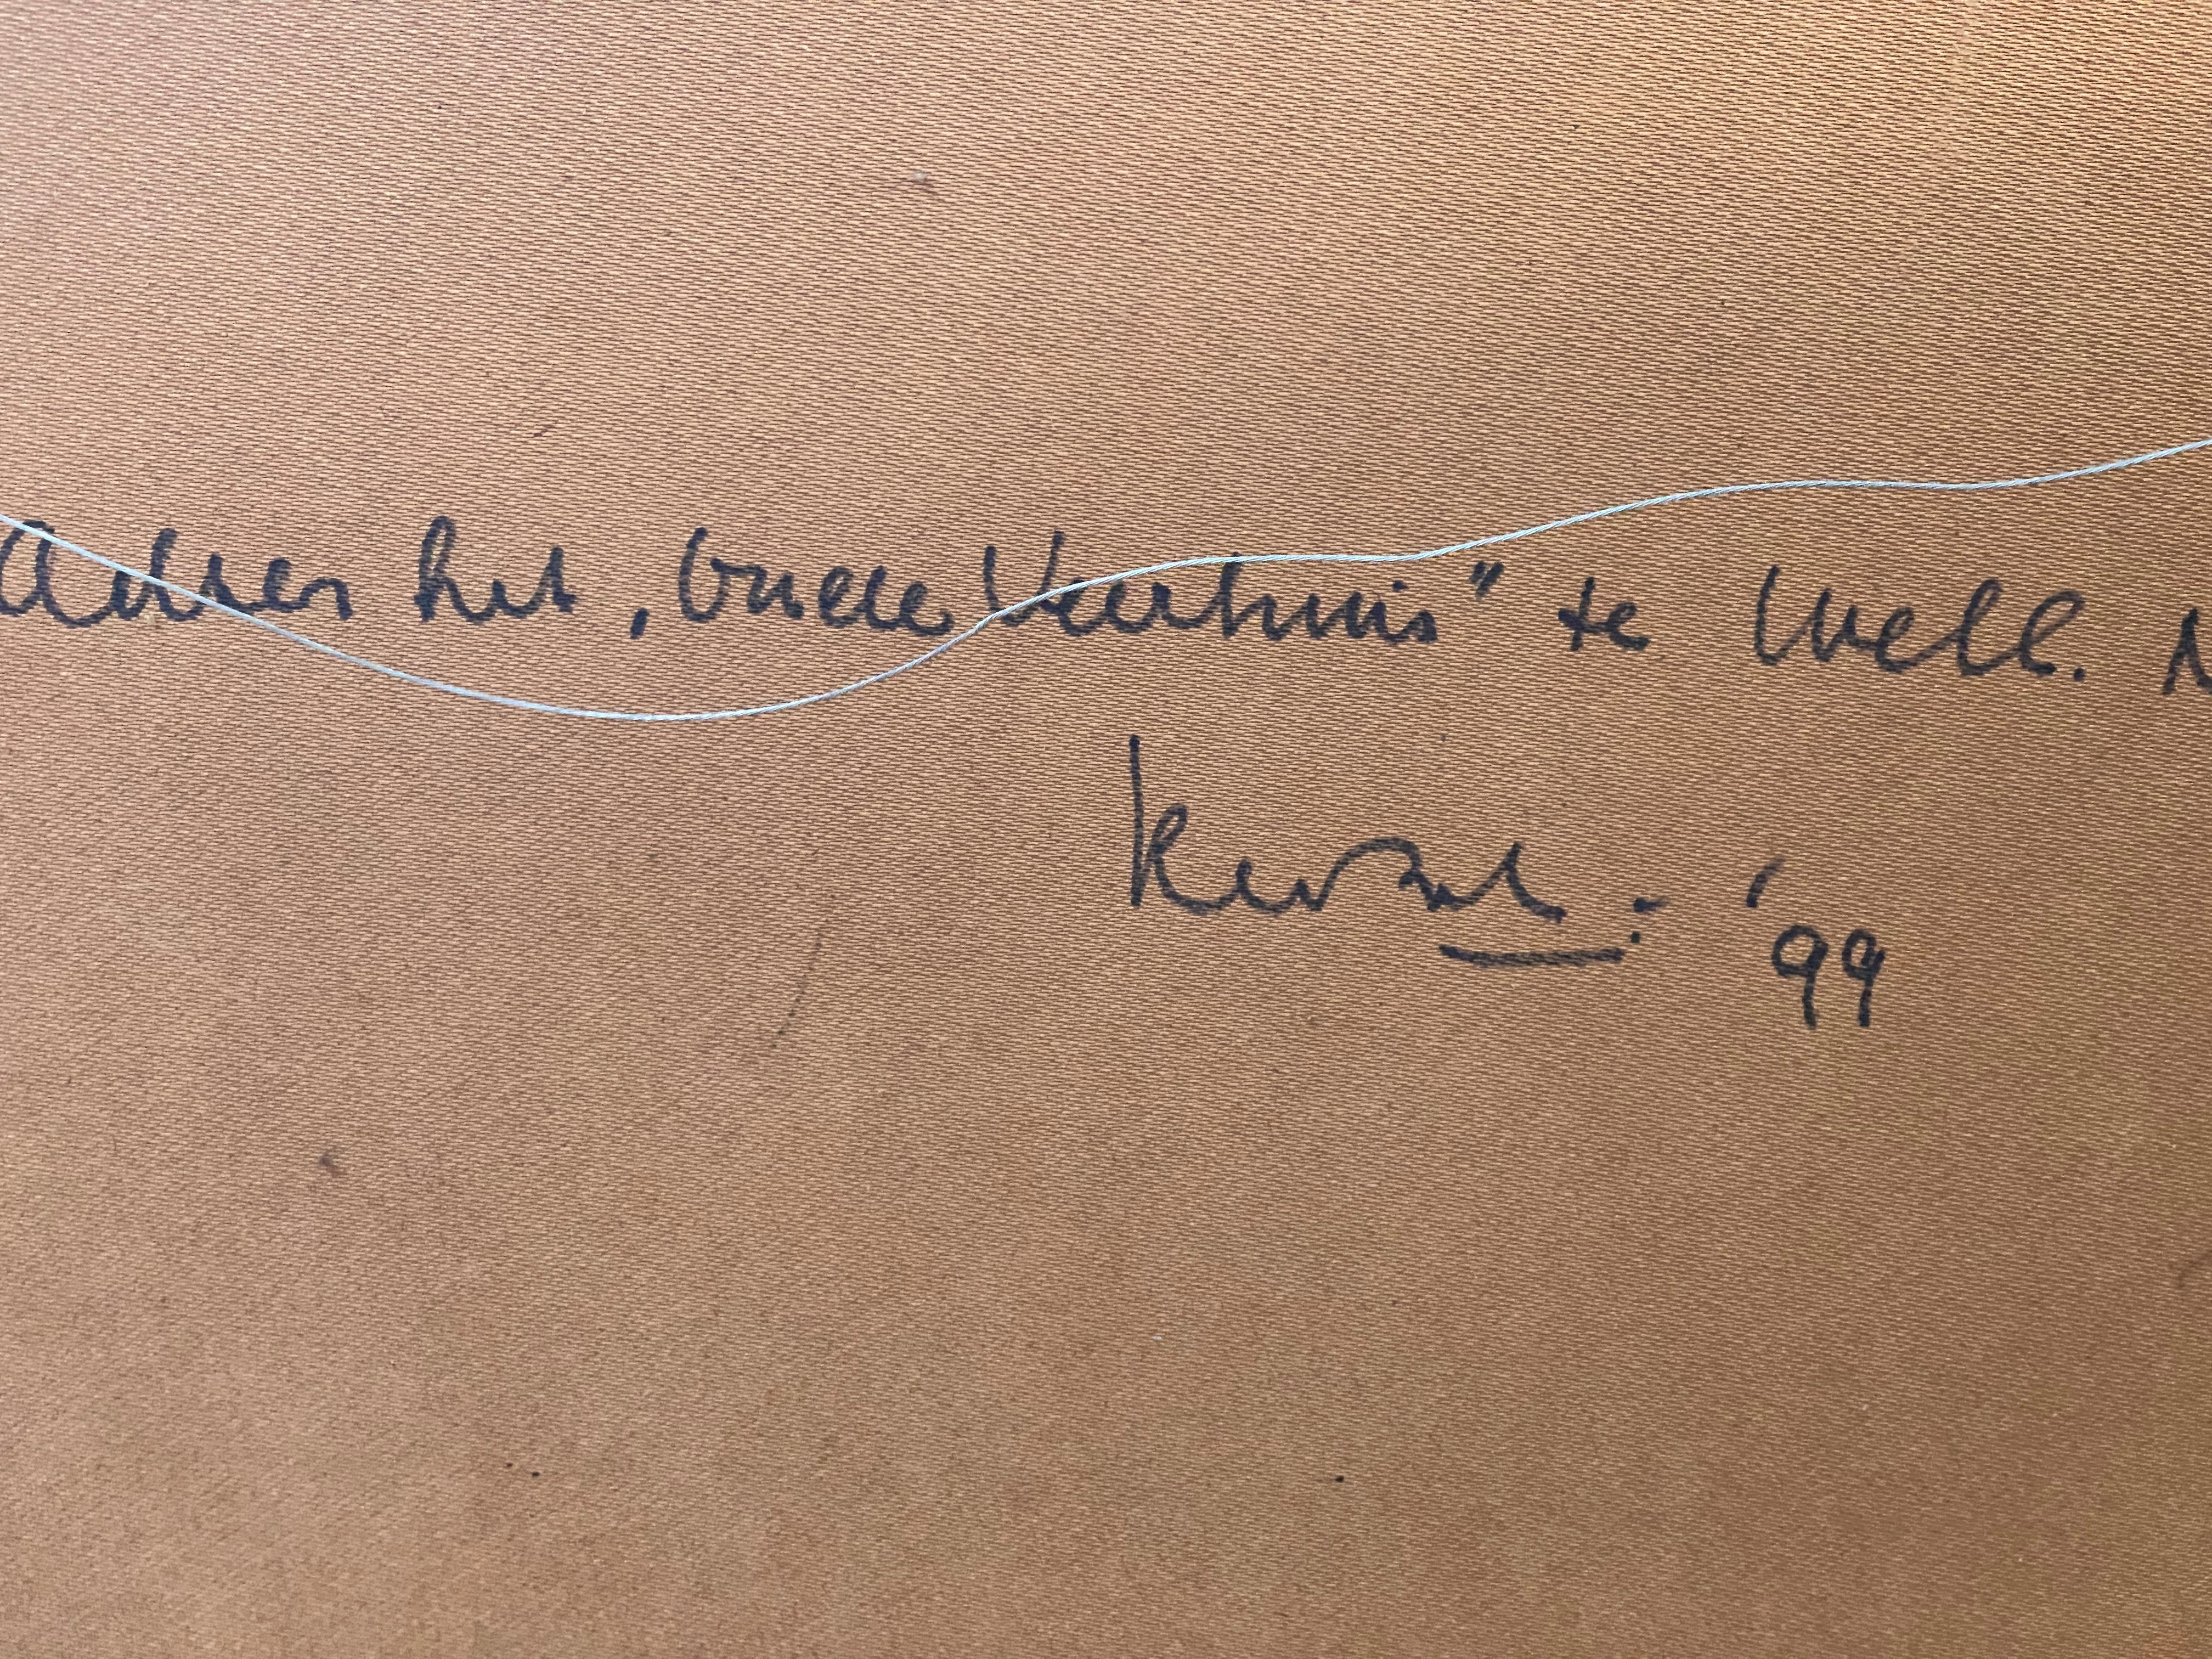 Achter het „Oude Veerhuis" te Well.
'99